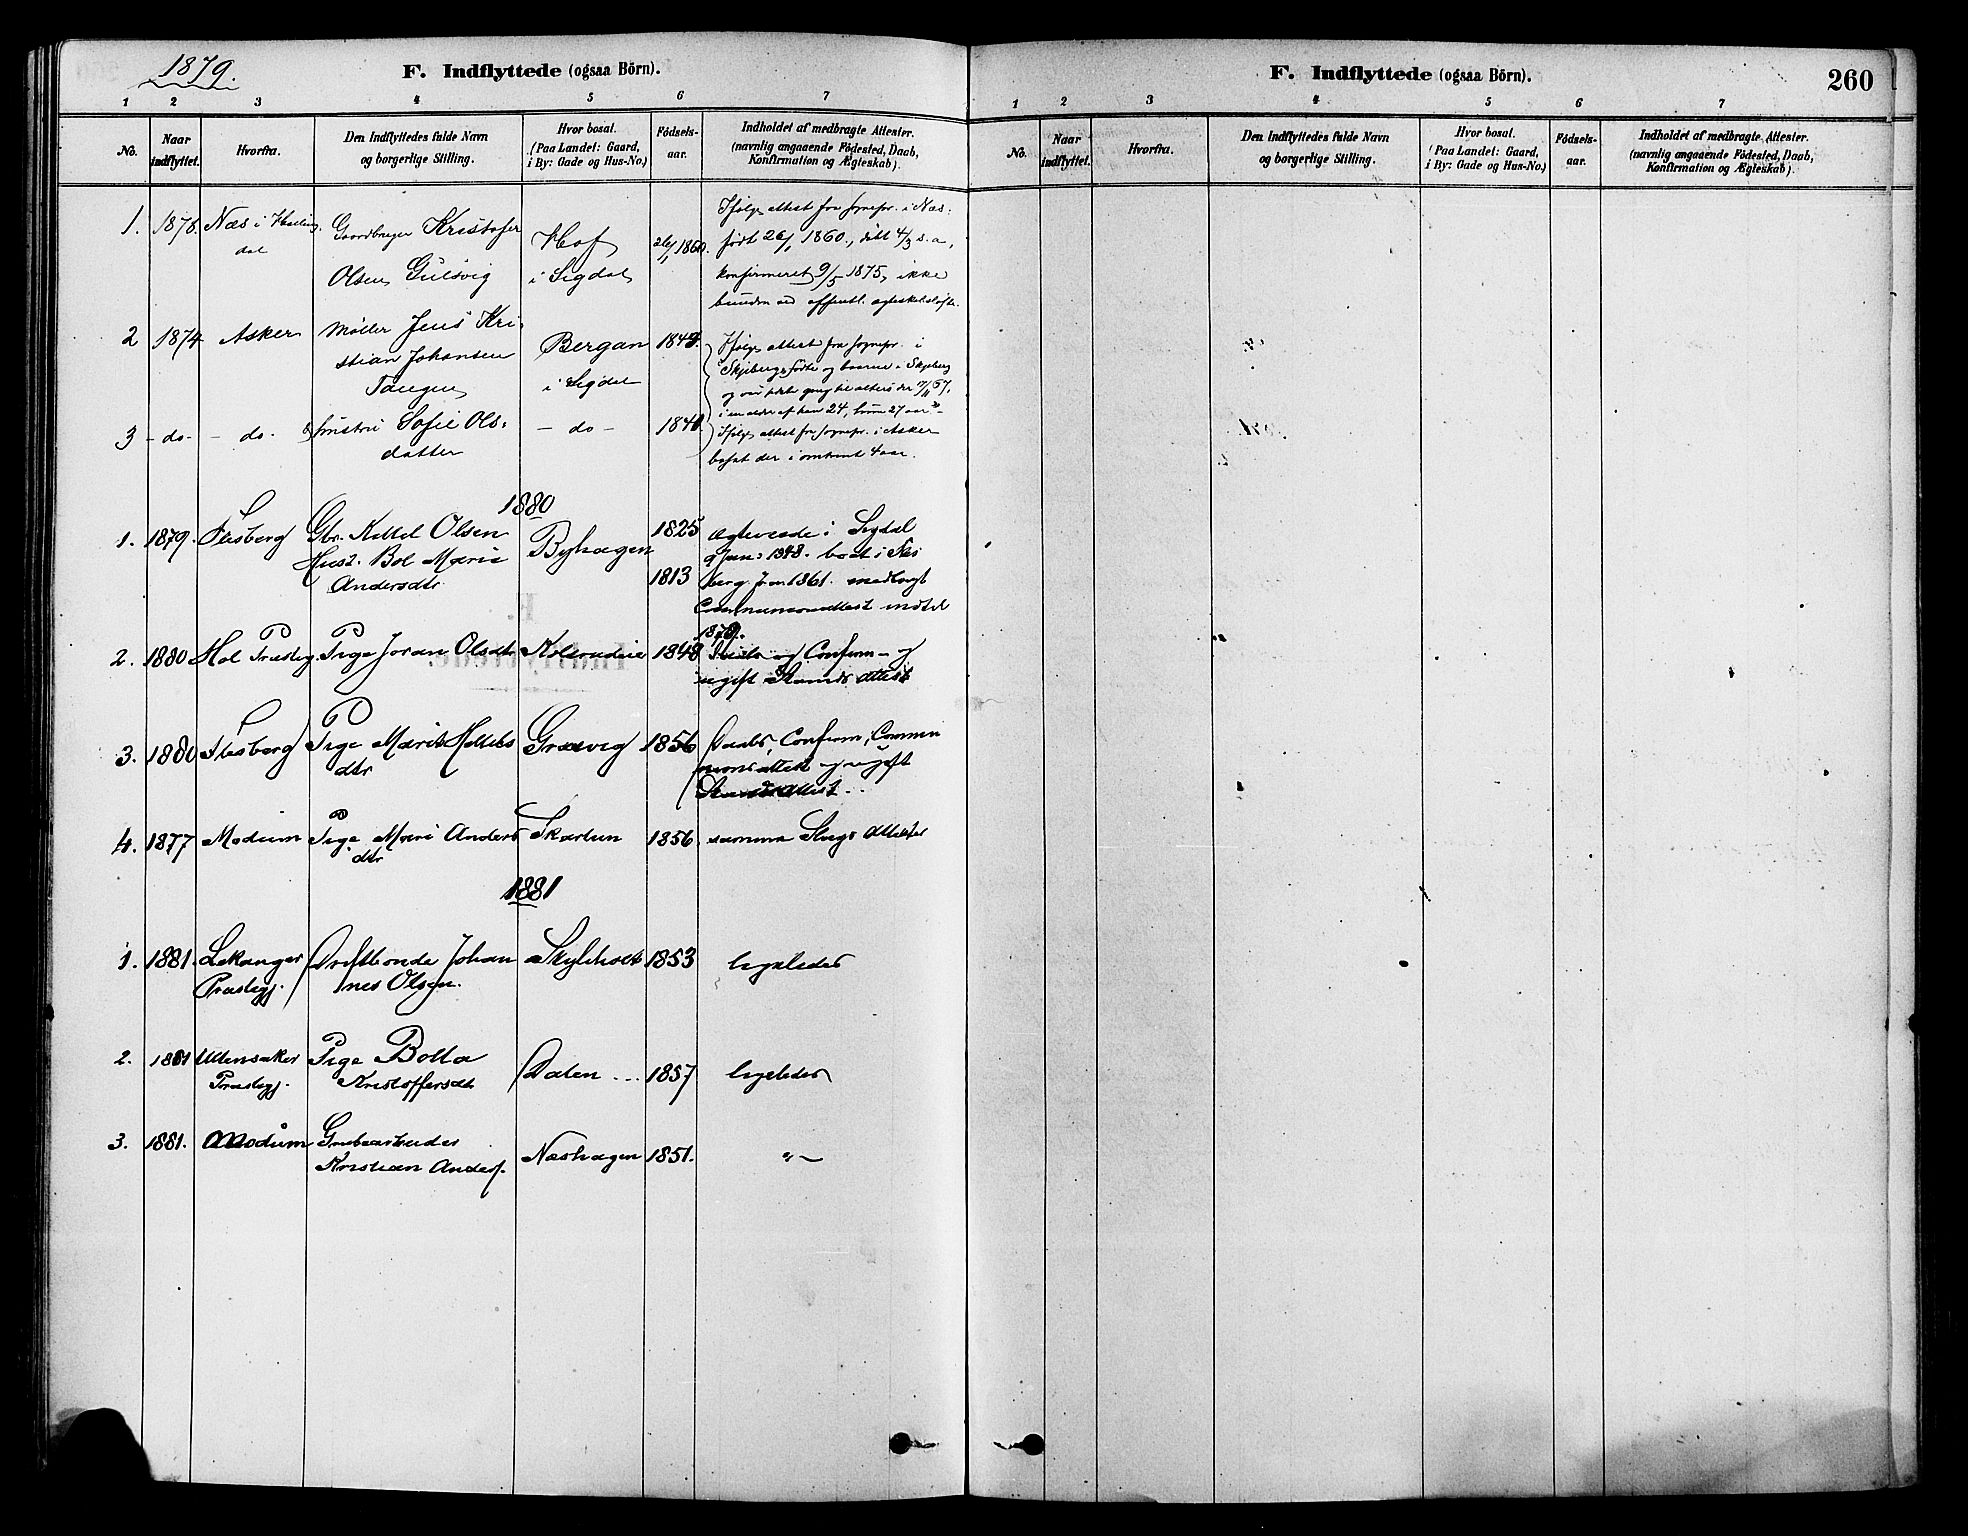 1879.
F. Indflyttede (ogsaa Börn).
1 2 3 4 5 6 7
No.
Naar indflyttet.
Hvorfra.
Den Indflyttedes fulde Navn og borgerlige Stilling.
Hvor bosat. (Paa Landet: Gaard, i By: Gade og Hus-No.)
Fódsels-aar.
Indholdet af medbragte Attester. (navnlig angaaende Fódested, Daab, Konfirmation og Ægteskab).
1. 1878. Næs i Halling
dal
Gaardbruger Kristofer
Olsen Gulsvig
Hof
i Sigdal
26/1 1860.
Ifølge attest fra sognepr. i Næs
født 26/1 1860., døbt 4/3 s. a.,
konfirmeret 9/5 1875, ikke
bunden ved offentl. ægteskabsløfte.
2 1874 Asker
Møller Jens Kri
stian Johansen
Tangen
Bergan
i Sigdal
Ifølge attest fra sognepr. i
Skjeberg fødte og baarne i Skjeberg
i en alder af han 24, hun 27 aar
3 - do - - do - hustru Sofie Ols
datter
- do - 1840
Ifølge attest fra sognepr. i Asker
bosat der i omtrent 4 aar.
1880
1. 1879. Flesberg Gbr. Kittel Olsen
Hust. Bol Marie
Andersdtr
Byhagen
1825
1813
ægteviede i Sigdal
boet i Fles
berg fra 1861. medbragt
Communionattest indtil
1879.
2. 1880 Hol Præstegj. Pige Joran Olsdtr 1848
og Confirm- og
ugift Stands attest
3. 1880 Flesberg Pige Marit Kittels
dtr
Gravvig 1856
Daabs, Confirm, Commu
nions attest og ugift
Stands Attest ..
4. 1877 Modum Pige Mari Anders
dtr
Skartum 1856 samme Slags Attester
1881
1. 1881. Lekanger
Præstegj.
Johan
nes Olsen.
1853 ligeledes
2. 1881 Ullensaker
Præstegj.
Pige Bolla
Kristoffersdt
Dalen ... 1857 ligeledes
3. 1881. Modum Grubearbeider
Kristian Anders.
Næshagen 1851. "-
F. Indflyttede (ogsaa Börn).
260
1 2 3 4 5 6 7
No.
Naar indflyttet.
Hvorfra.
Den Indflyttedes fulde Navn og borgerlige Stilling.
Hvor bosat. (Paa Landet: Gaard, i By: Gade og Hus-No.)
Fódsels-aar.
Indholdet af medbragte Attester. (navnlig angaaende Fódested, Daab, Konfirmation og Ægteskab).